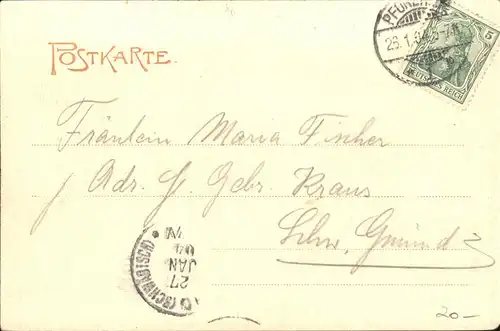 POSTKARTE
PFORZH
26.1.04 5-7N
5
DEUTSCHES REICH
Fräulein Maria Fischer
Adr. H. Gebr. Kraus
Schw. Gmünd
(SCHWÄBISCH)
27
JAN
04
20-